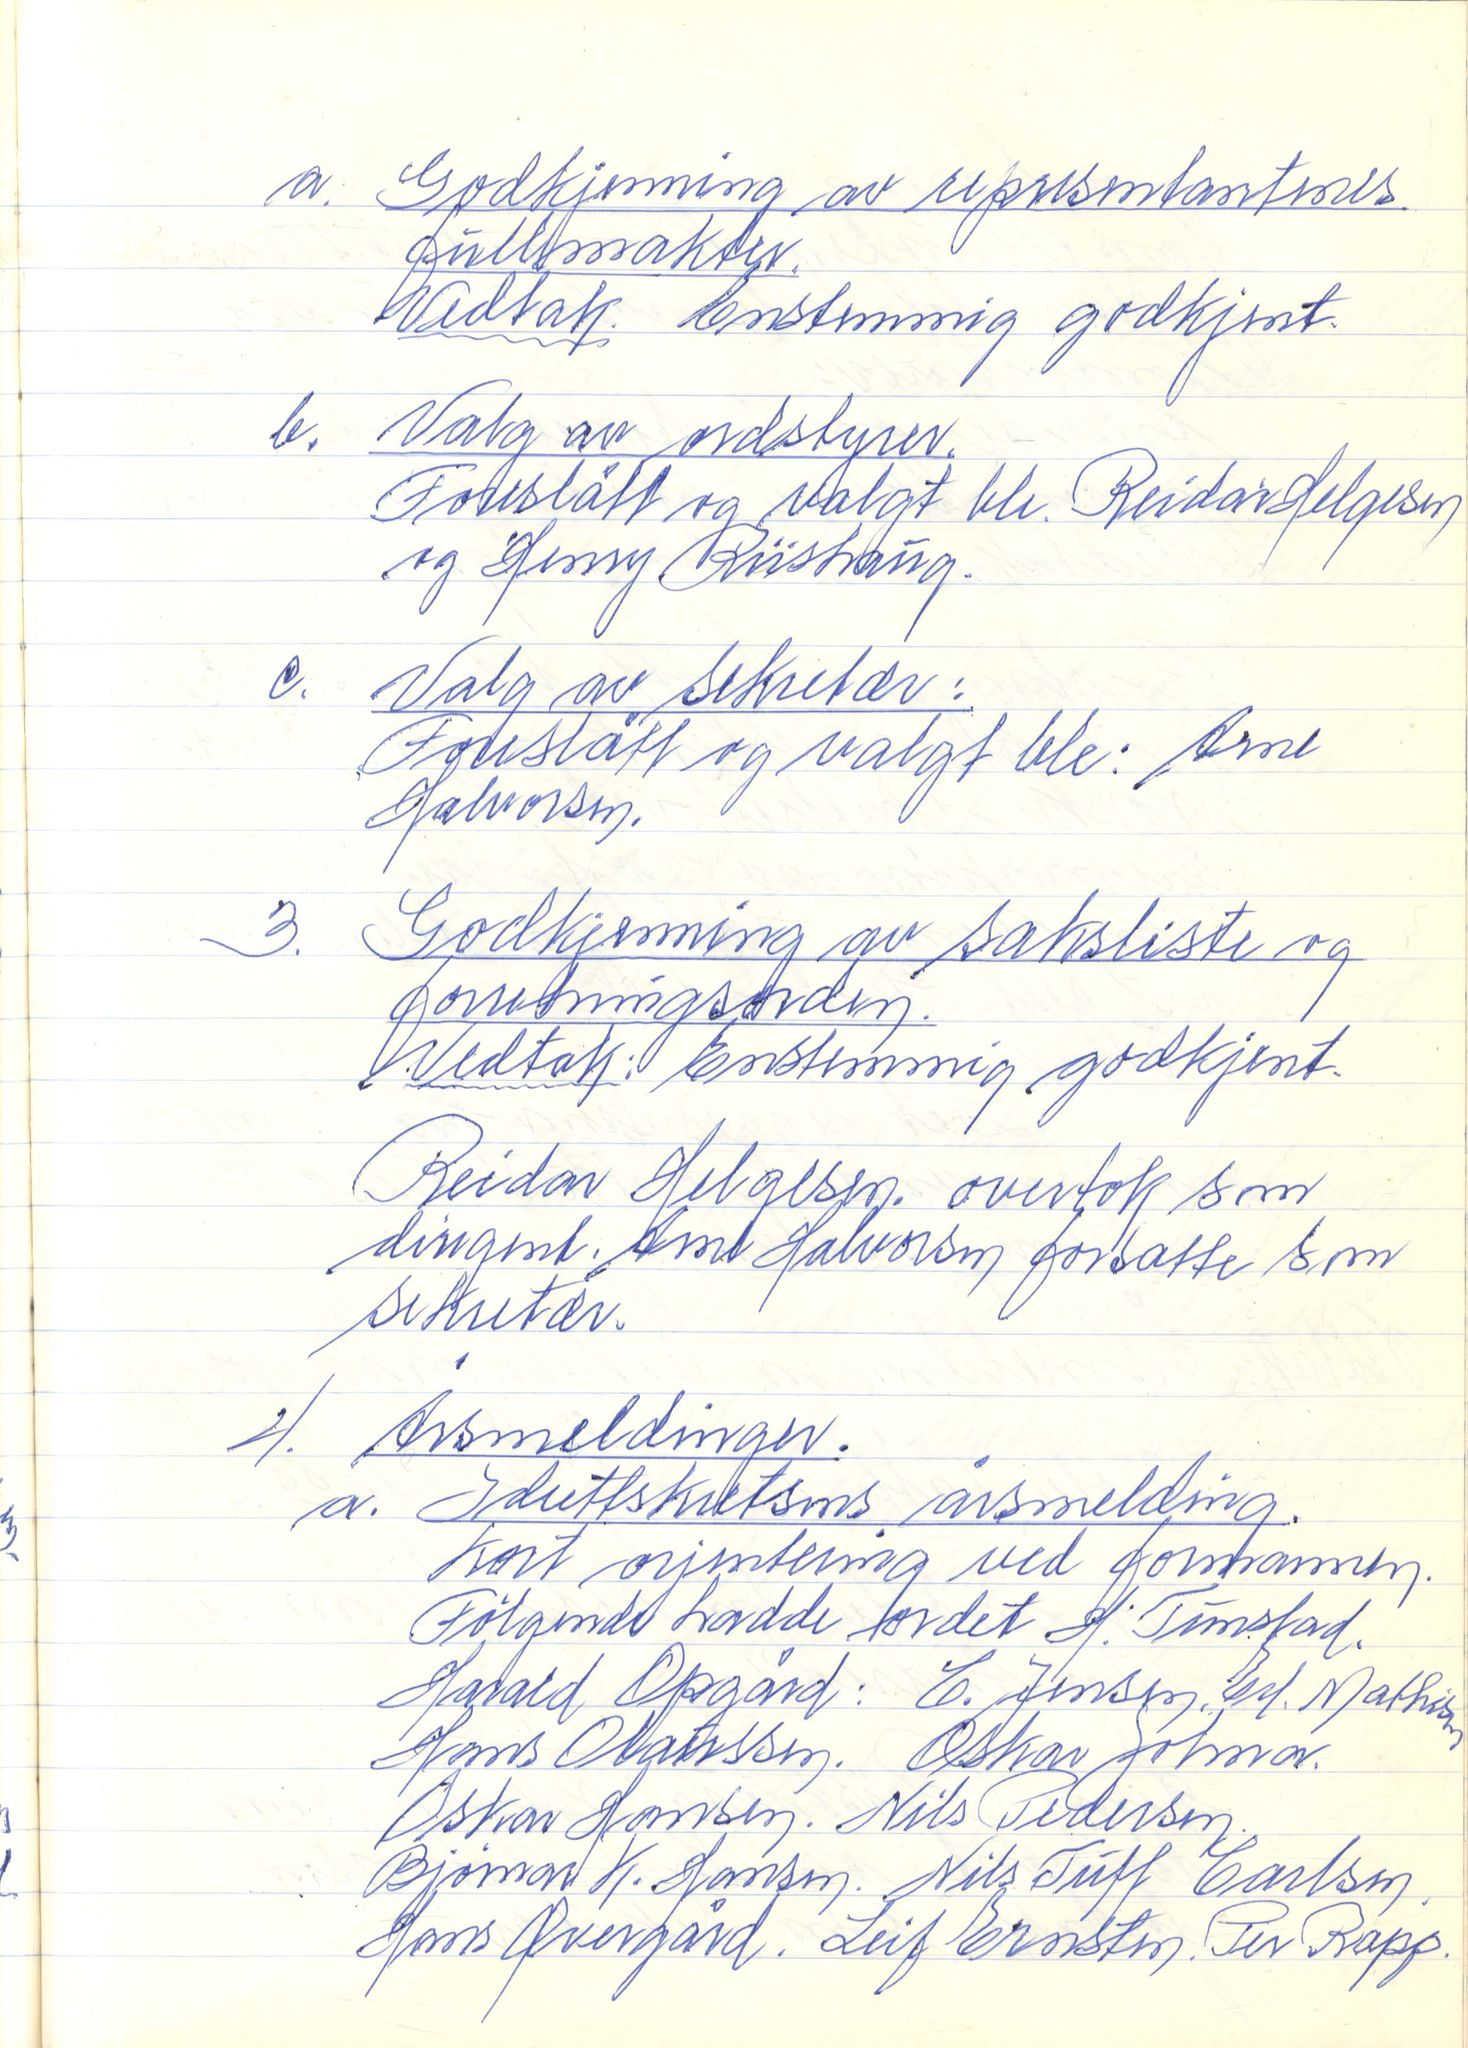 a. Godkjenning av representantenes
fullmakter.
Vedtak. Enstemmig godkjent.
b. Valg av ordstyrer.
Foreslått og valgt ble. Reidar Helgesen
og Henry Riishaug.
c. Valg av sekretær:
Foreslått og valgt ble: Arne
Halvorsen.
3. Godkjenning av saksliste og
forretningsorden.
Vedtak: Enstemmig godkjent.
Reidar Helgesen. overtok som
dirigent. Arne Halvorsen forsatte som
sekretær.
4. Årsmeldinger.
a. Idrettskretsens årsmelding.
Kort orjentering ved formannen.
Følgende hadde ordet H. Tunstad.
Harald Opgård: E. Jensen. Mathisen
Hans Olaussen. Oskar
Oskar Hansen. Nils Pedersen.
Bjørnar K. Hansen. Nils Tuff Carlsen.
Hans Øvergård. Leif Ernsten. Per Rapp.